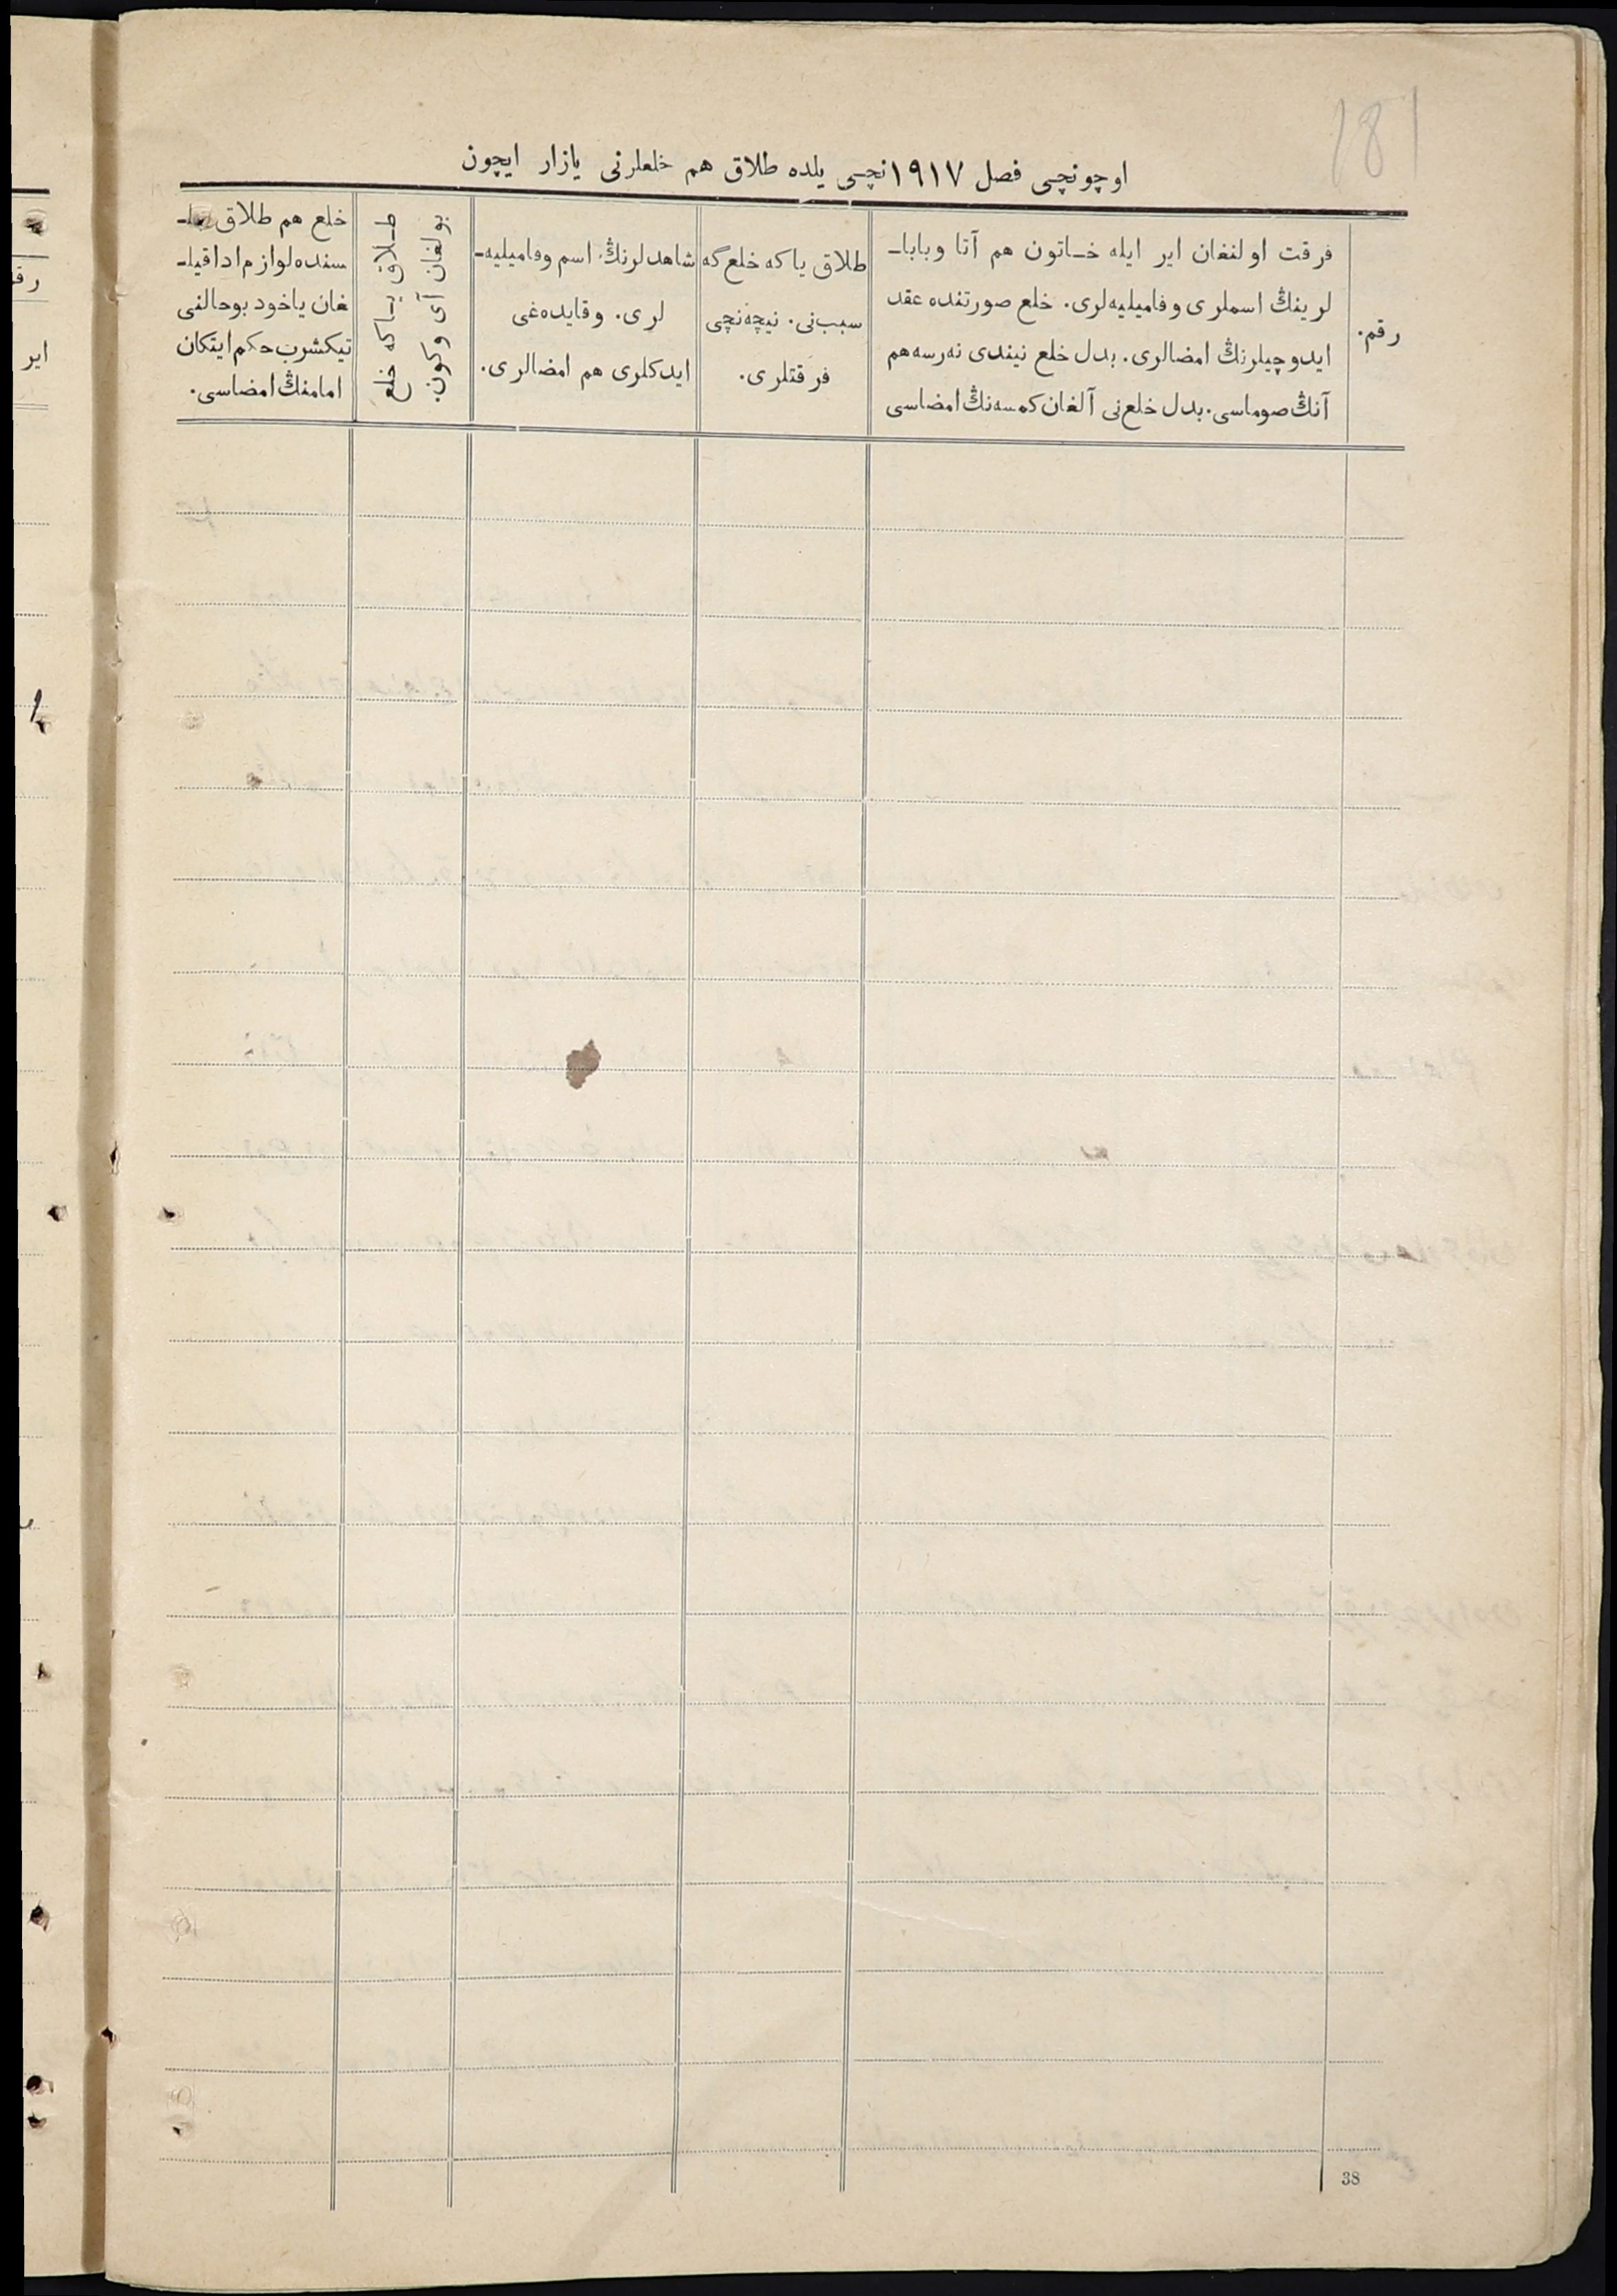 181
اوچونچی فصل ١٩١٧نچی یلده طلاق هم خلعلرنی یازار ایچون
رقم.
فرقت اولنغان ایر ایله خـاتون هم آتا وباباـ
لرینڭ اسملری وفامیلیه‌لری. خلع صورتنده عقد
ایدوچیلرنڭ امضالری. بدل خلع نیندی نه‌رسه هم
آنڭ صوماسی. بدل خلع‌نی آلغان کمسه‌نڭ امضاسی
طلاق یا که خلع گه
سبب‌نی. نیچه‌نچی
فرقتلری.
شاهدلرنڭ اسم وفامیلیه‌ـ
لری. وقایده‌غی
ایدکلری هم امضالری.
طـلاق یـاکه خلع
بولغان آی وکون.
خلع هم طلاق
سنده لوازم ادا قیلـ
غان یاخود بوحالنی
تیکشرب حکم ایتکان
امامنڭ امضاسی.
38
ایر